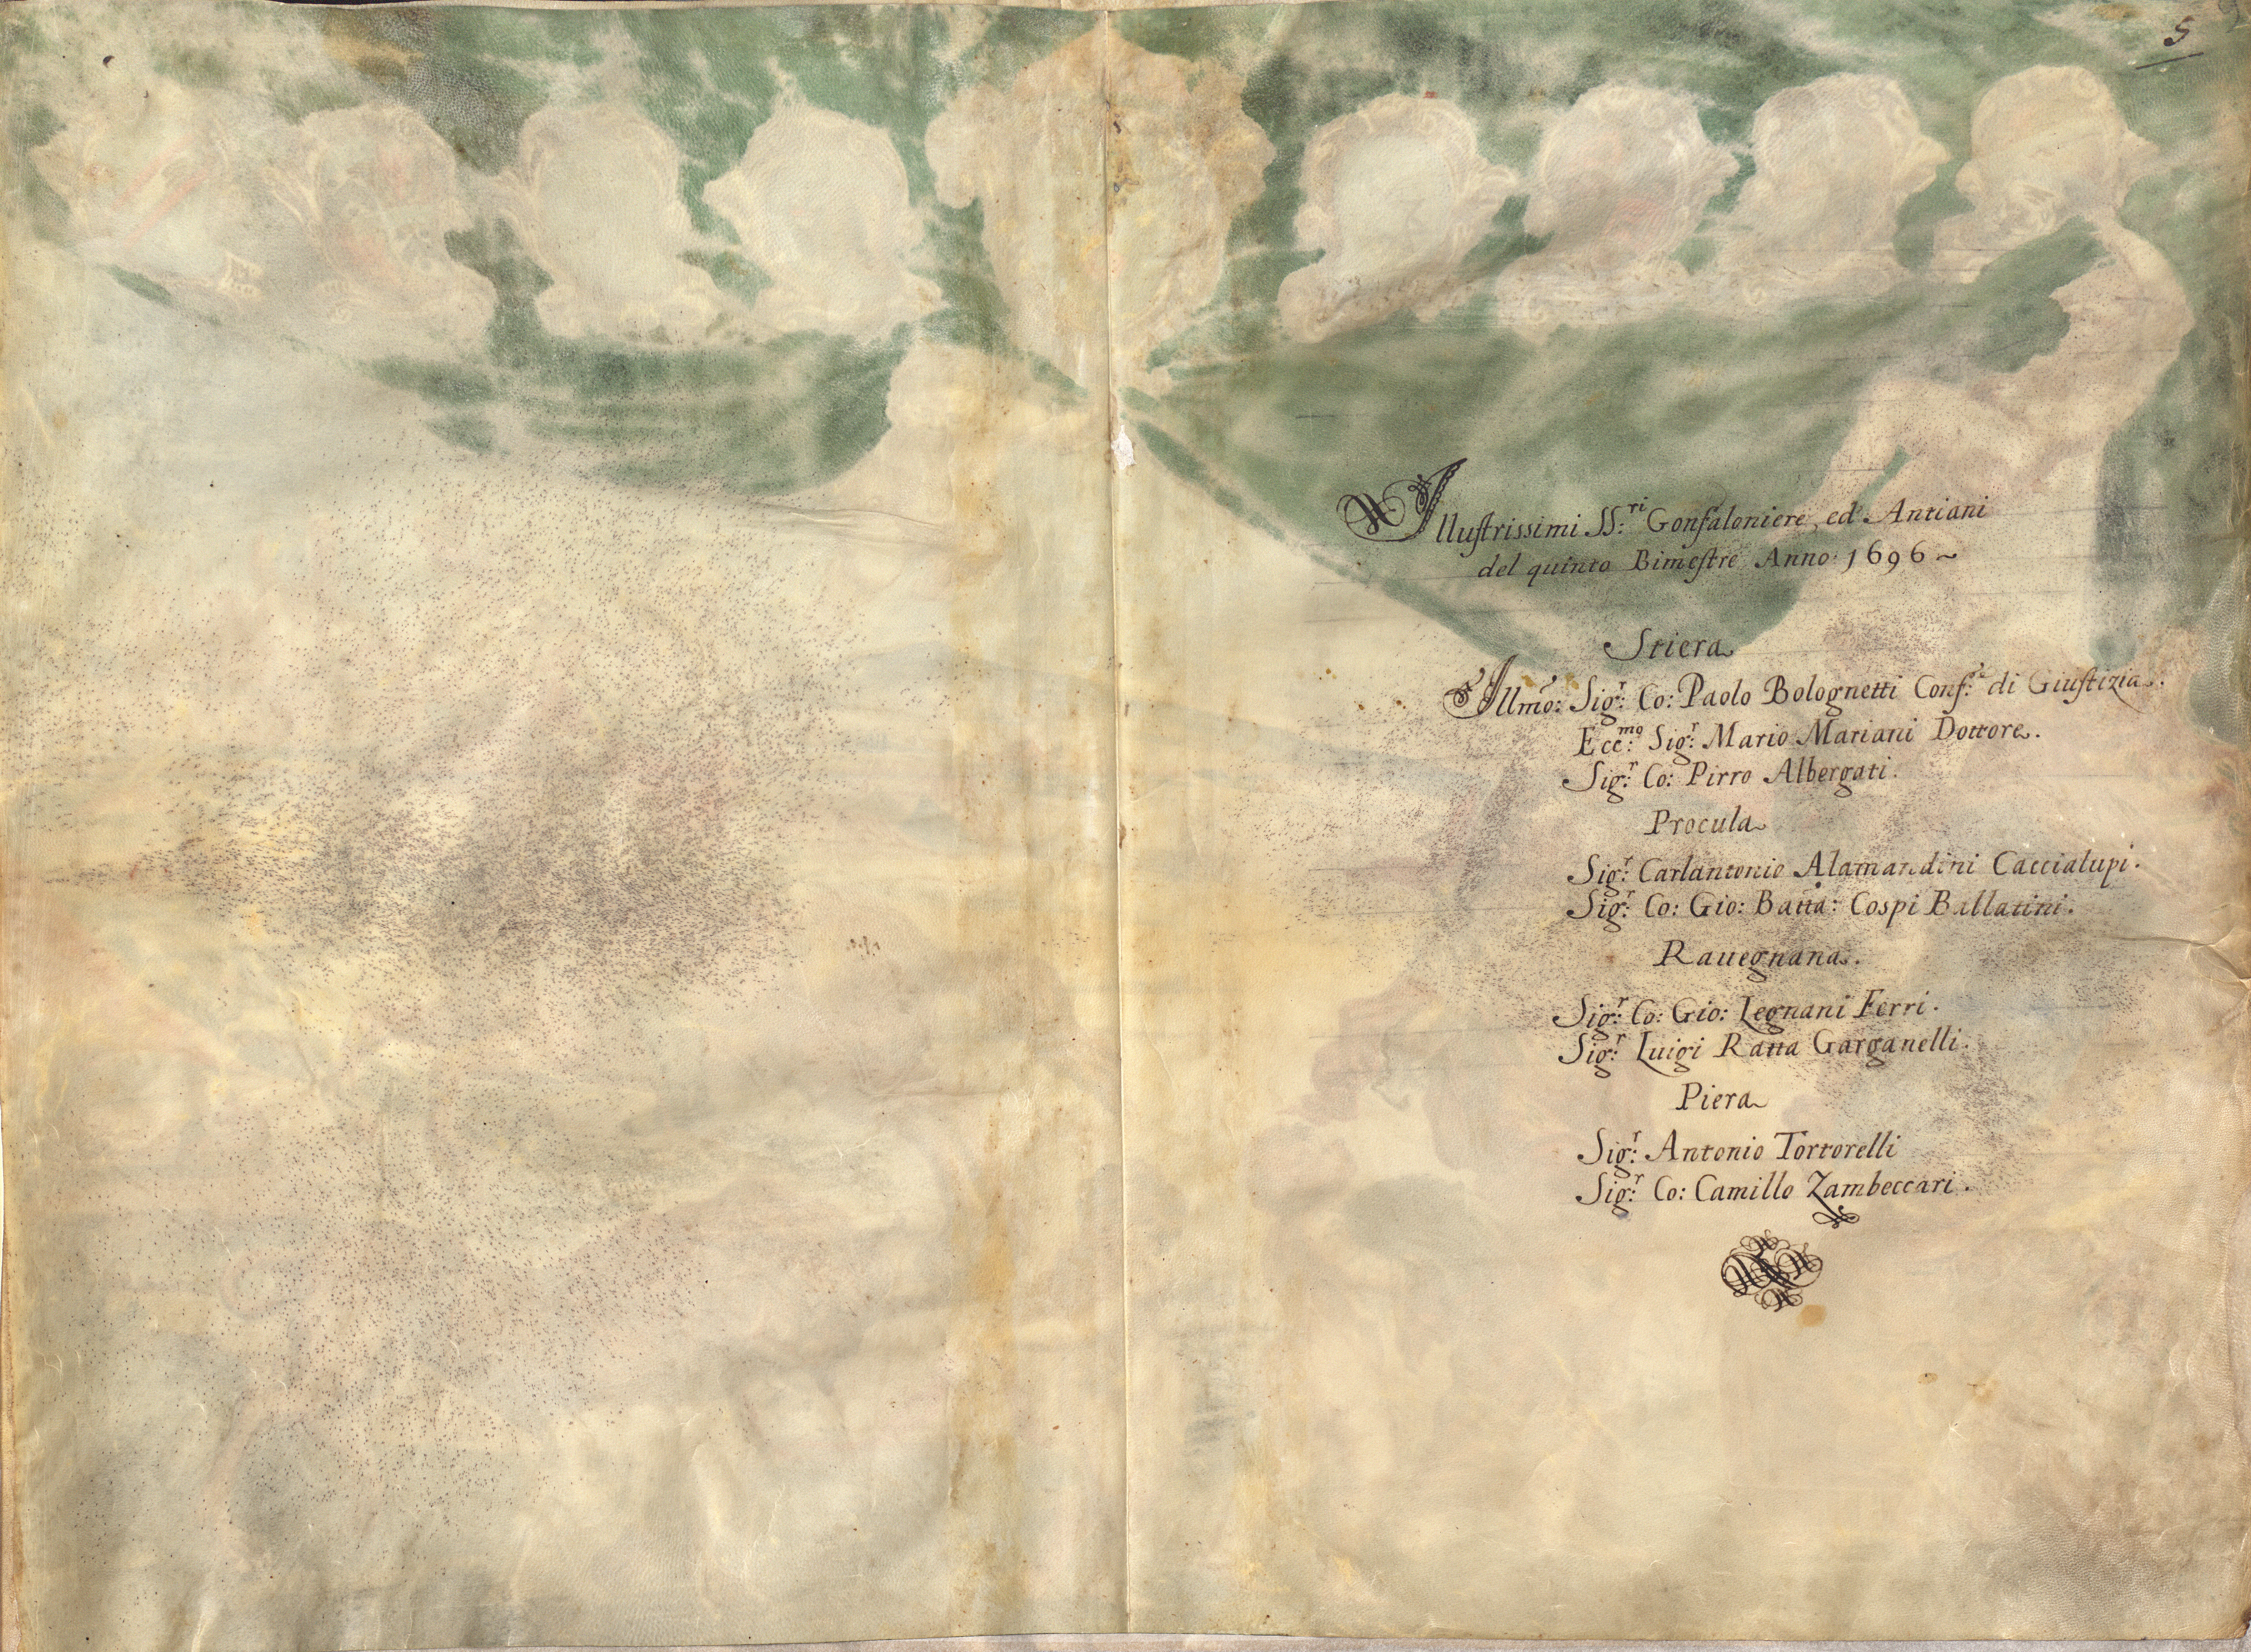 5
Illustrissimi SS:ri Gonfaloniere, ed Antiani
del quinto Bimestre Anno: 1696~
Stiera
Illmo: Sig:r Co: Paolo Bolognetti Conf:e di Giustizia.
Ecc:mo Sig:r Mario Mariani Dottore.
Sig:r Co: Pirro Albergati.
Procula
Sig:r Carlantonio Alamandini Caccialupi.
Sig:r Co: Gio: Batta: Cospi Ballatini.
Rauegnana.
Sig:r Co: Gio: Legnani Ferri.
Sig:r Luigi Ratta Garganelli.
Piera
Sig:r Antonio Tortorelli
Sig:r Co: Camillo Zambeccari.